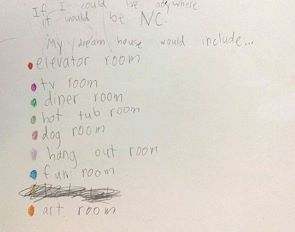 If I could be anywhere
it would be NC.
My dream house would include...
elevator room
tv room
diner room
hot tub room
dog room
hang out room
fun room
art room